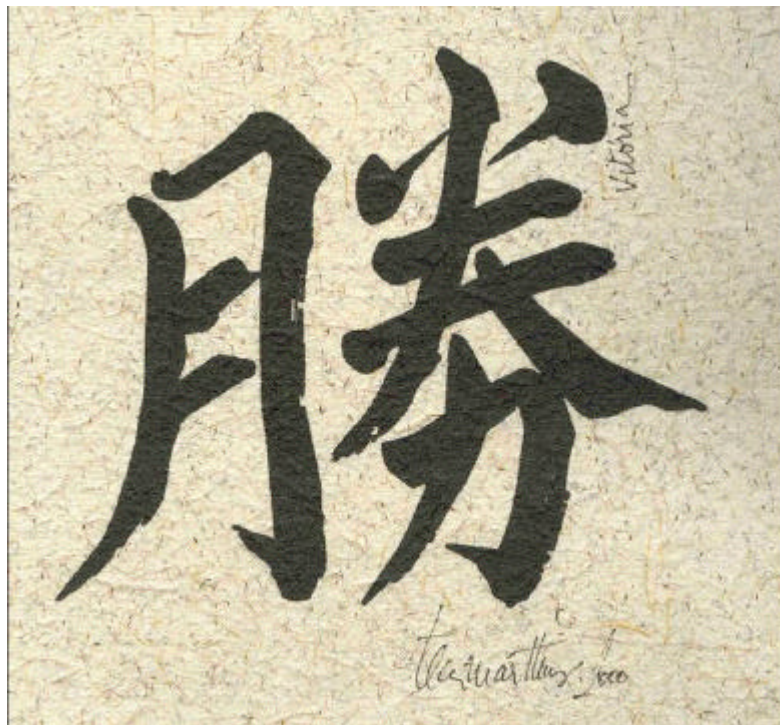 勝
Vitória